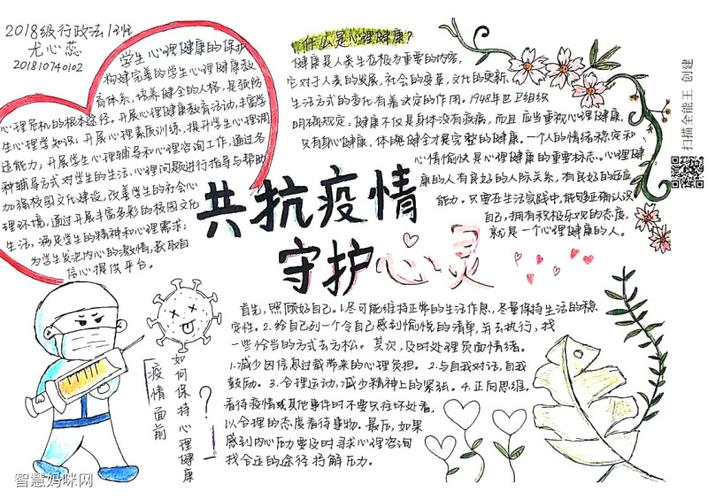 2018级行政法1班
尤心蕊
201810740102
学生心理健康的保护
构建完善的学生心理健康教
育体系，培养健全的人格，是预防
心理危机的根本途径。开展心理健康教育活动，丰富学
生心理学知识；开展心理素质训练，提升学生心理调
适能力；开展学生心理辅导和心理咨询工作，通过各
种辅导方式对学生的生活、心理问题进行指导与帮助
加强校园文化建设，改善学生的社会心
理环境，通过开展丰富多彩的校园文化
生活，满足学生的精神和心理需求；
为学生发泄内心的激情，获取自
信心提供平台。
什么是心理健康？
健康是人类生存极为重要的内容，
它对于人类的发展，社会的变革，文化的更新，
生活方式的变化有着决定的作用。1948年世卫组织
明确规定，健康不仅是身体没有疾病，而且应当重视心理健康，
只有身心健康、体魄健全才是完整的健康。一个人的情绪稳定和
心情愉快是心理健康的重要标志。心理健
康的人有良好的人际关系，有良好的适应
能力。只要在生活实践中，能够正确认识
自己，拥有积极乐观的态度，
就是一个心理健康的人。
共抗疫情
守护心灵
疫情面前
如何保持心理健康？
首先，照顾好自己。1.尽可能维持正常的生活作息，尽量保持生活的稳
定性。2.给自己列一个令自己感到愉悦的清单，并去执行，找
一些恰当的方式去放松。其次，及时处理负面情绪。
1.减少因信息过载带来的心理负担。2.与自我对话，自我
鼓励。3.合理运动，减少精神上的紧张。4.正向思维。
看待疫情或其他事件时不要只往坏处看，
以合理的态度看待事物。最后，如果
感到内心压力要及时寻求心理咨询
找合适的途径排解压力。
扫描全能王 创建
智慧妈咪网